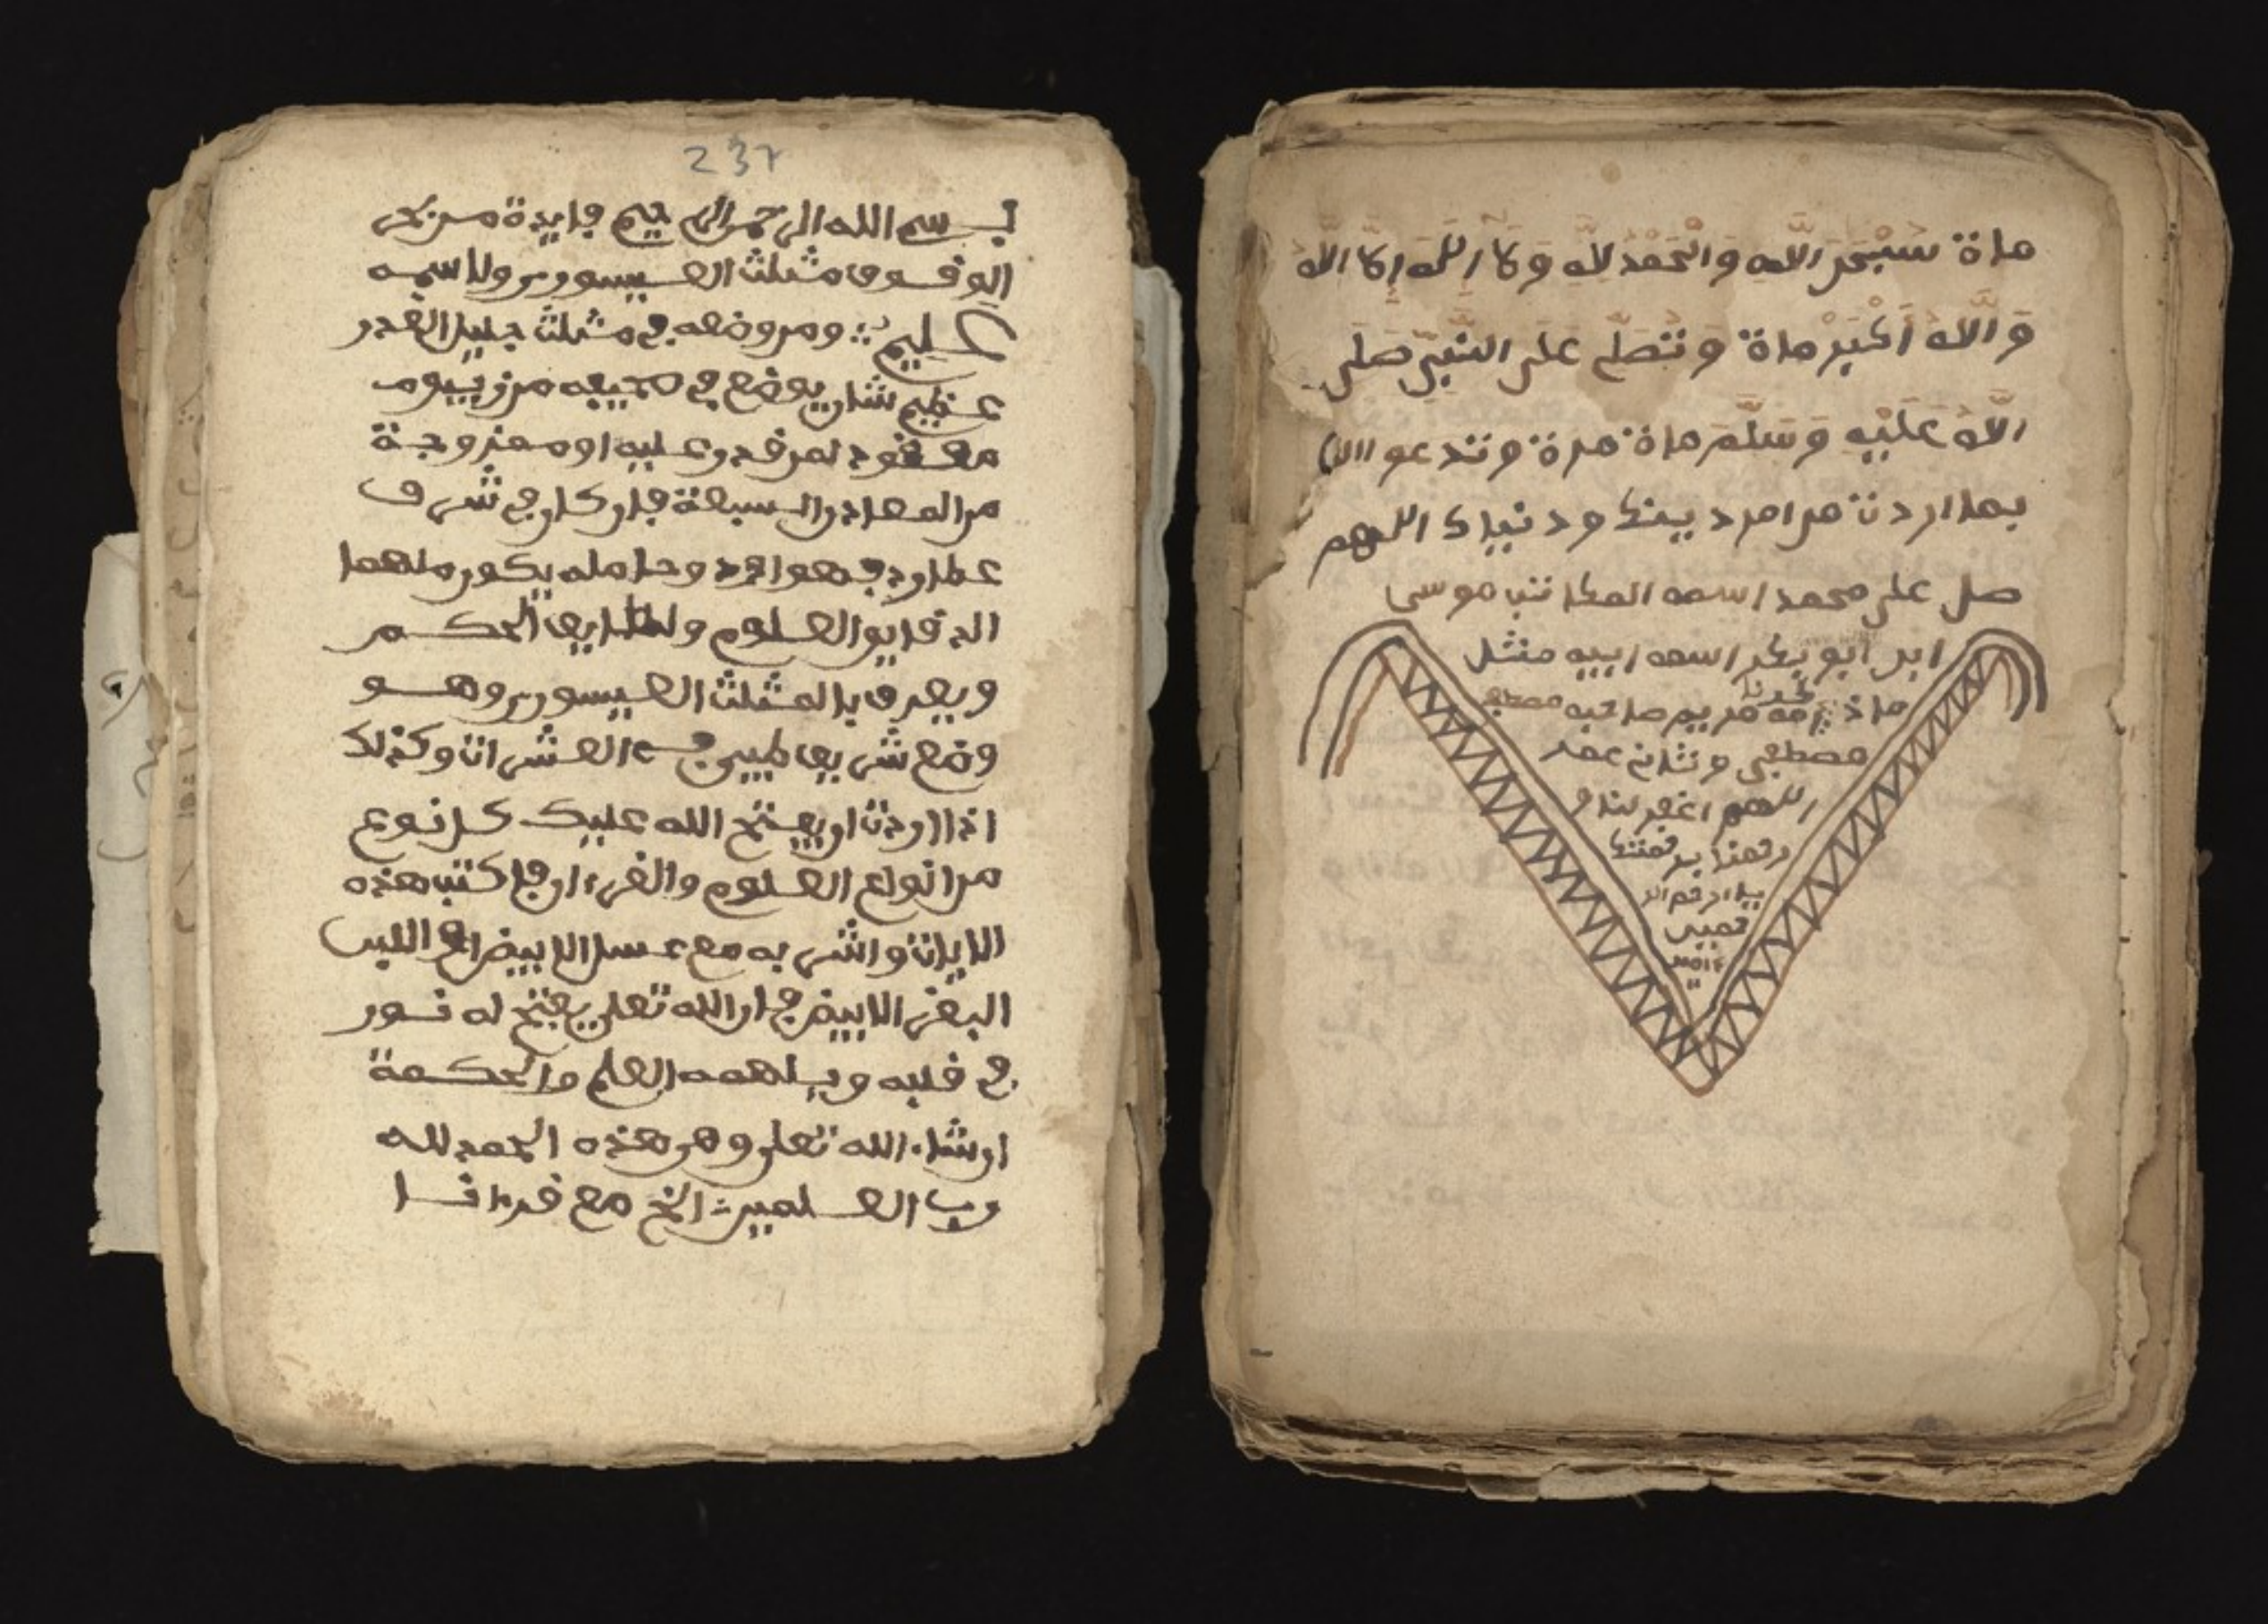 ماة سبحن الله والحمد لله ولا اله الا الله
والله اكبر ماة وتصل على النبي صلى
الله عليه وسلم ماة مرة وتدعوا الله
بما اردت من امر دينك ودنياك اللهم
صل على محمد اسمه الكاتب موسى
ابن ابو بكر اسمه ابيه
مريم صاحبه مصطفى
مصطفى عمر
اللهم اغفر لنا و
رحمنا برحمتك
يا ارحم الر
حمين
ءامين
237
بسم الله الرحمن الرحيم فايدة من بحر
الوفوق مثلث العيسوي ولاسمه
عليم ومن وضعه في مثلث جليل القدر
عظيم شان يوضع في صحيفه من زيبوم
معقود لمن قدر عليه او ممزوجة
من المعادن السبعة فان كان في شرف
عطارد فهو اجود وحامله يكون ملهما
الدقايو العلوم ولطايف الحكم
ويعرف بالمثلث العيسوي وهو
وضع شريف طيبي العشرات وكذلك
اذا اردت ان يفتح الله عليك كل نوع
من انواع العلوم والقرءان فاكتب هذه
الايات واشربه مع عسل الابيض او اللبن
البقر الابيض فان الله تعلى يفتح له نور
في قلبه ويلهمه العلم والحكمة
ان شاء الله تعلى وهي هذه الحمد لله
رب العلمين الخ مع قرءانا